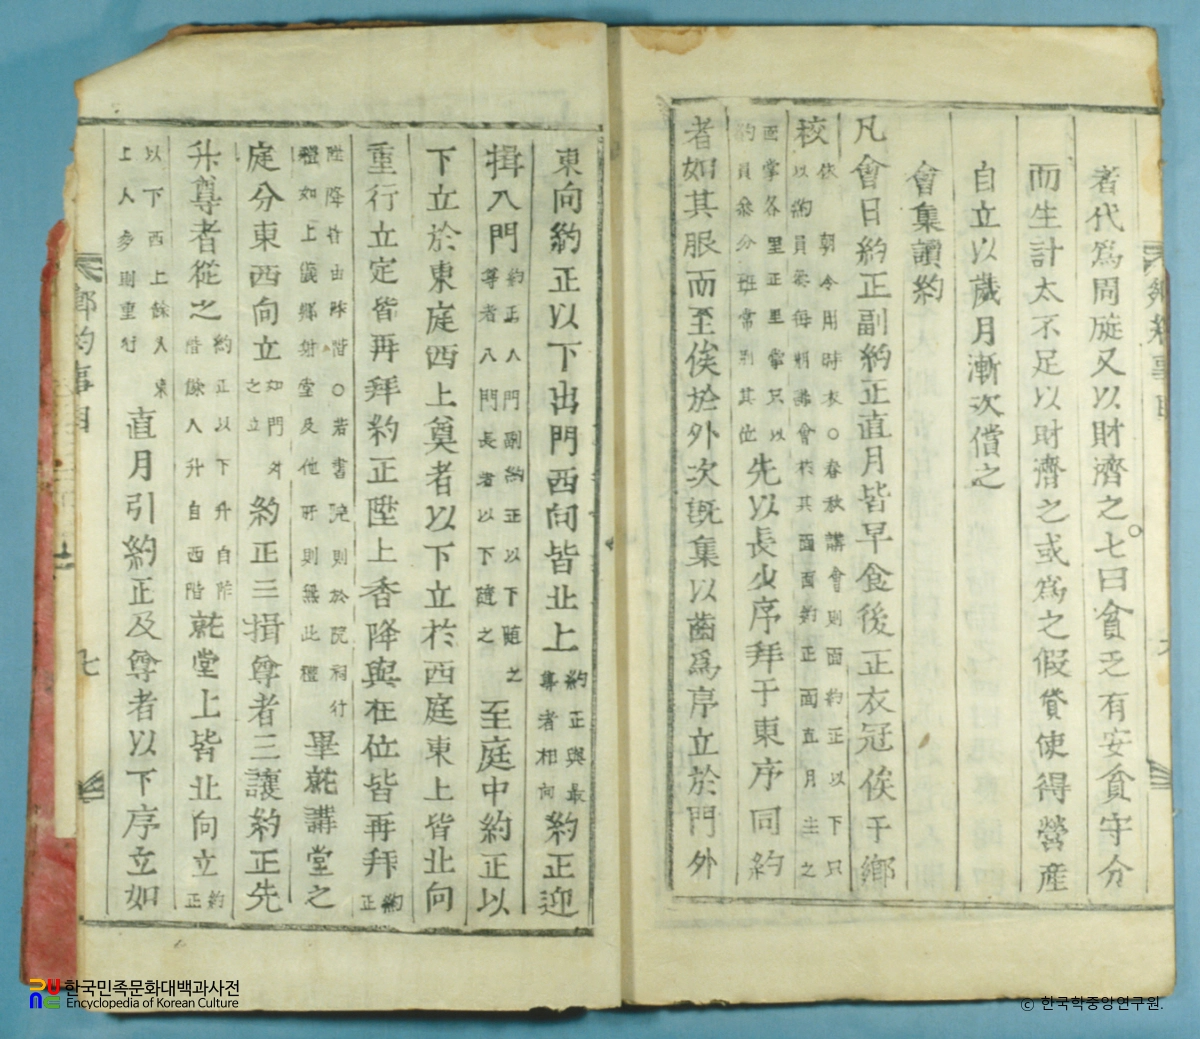 者代爲周旋又以財濟之七曰貧乏有安貧守分
而生計太不足以財濟之或爲之假貸使得營產
自立以歲月漸次償之
會集讀約
凡會日約正副約正直月皆早食後正衣冠俟于鄉
校依朝令用時衣○春秋講會則面約正以下只以約員參每朔講會於其面面約正面直月主之
面掌各里正里掌只以約員參分班常別其位先以長少序拜于東序同約
者如其服而至俟於外次既集以齒爲序立於門外
東向約正以下出門西向皆北上約正與最尊者相向約正迎
揖入門約正入門副約正以下随之尊者入門長者以下随之至庭中約正以
下立於東庭西上奠者以下立於西庭東上皆北向
重行立定皆再拜約正陞上香降與在位皆再拜約正
陞降皆由阼階○若書院則於院祠行禮如上儀鄉射堂及他所則無此禮畢就講堂之
庭分東西向立如門外之立約正三揖尊者三讓約正先
升尊者從之約正以下升自阼階餘人升自西階就堂上皆北向立約正
以下西上餘人東上人多則重行直月引約正及尊者以下序立如
鄉約事目
七
한국민족문화대백과사전
Encyclopedia of Korean Culture
ⓒ 한국학중앙연구원.